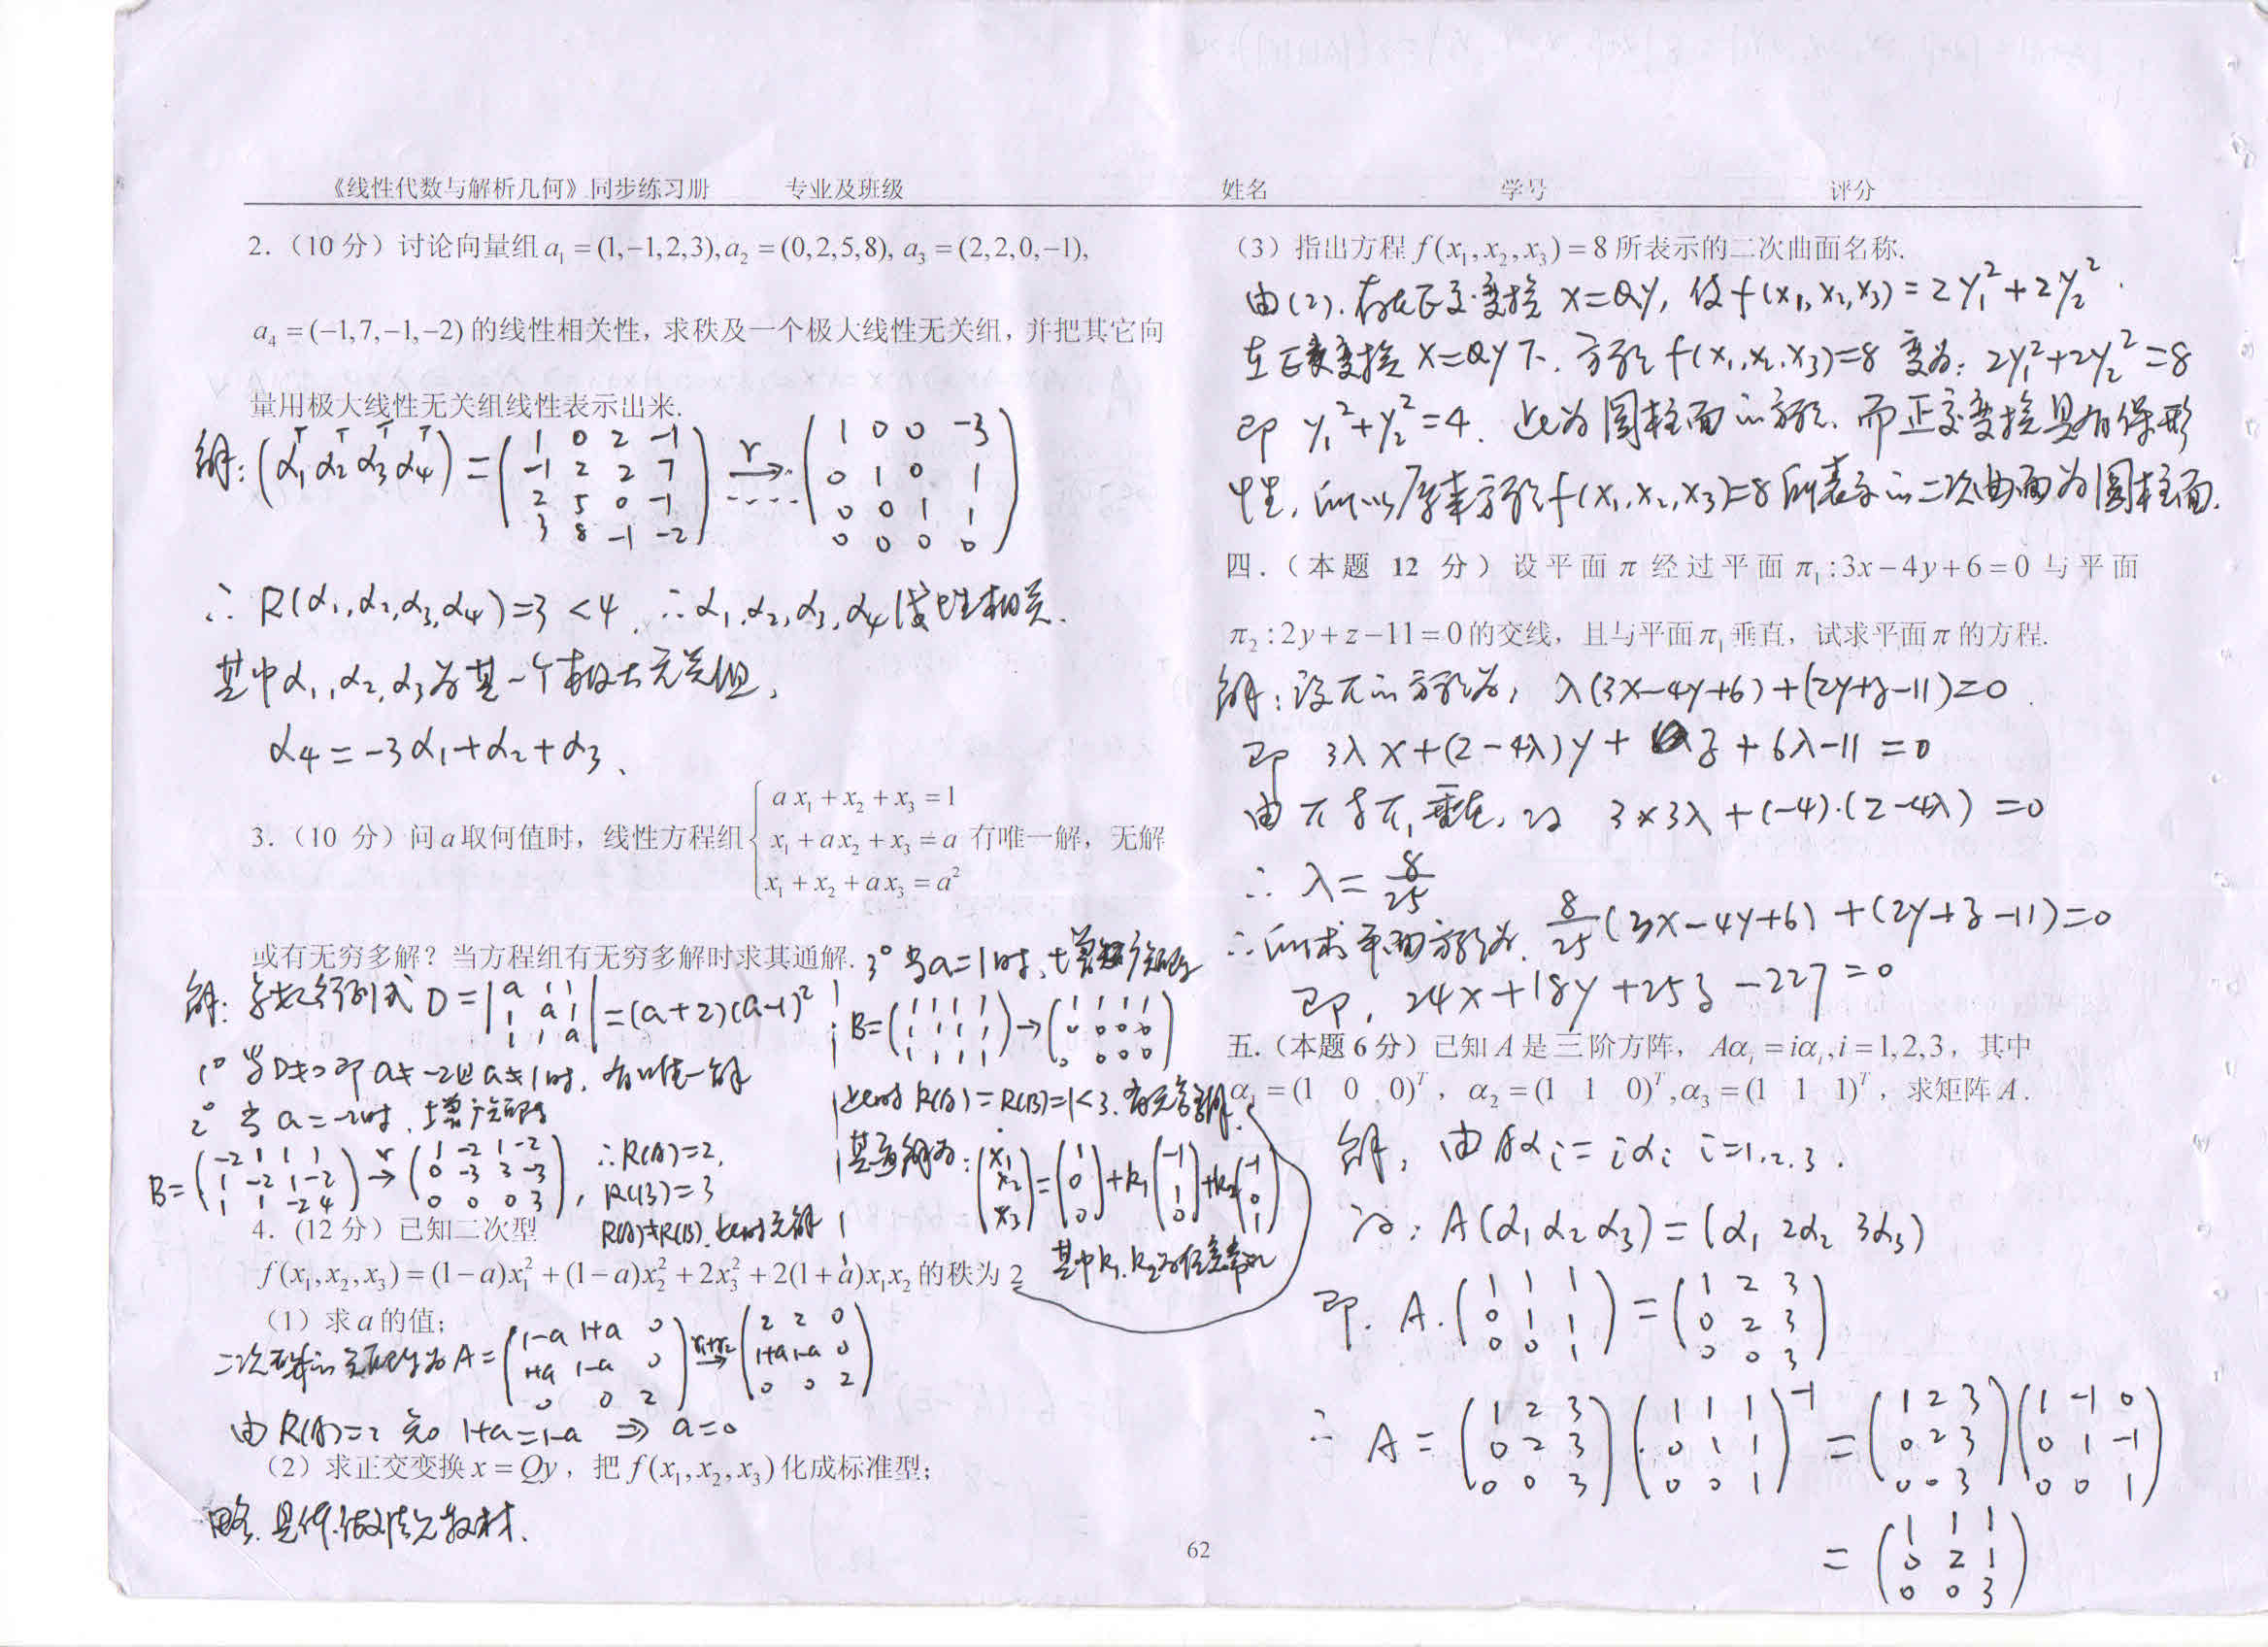 《线性代数与解析几何》同步练习册 专业及班级 姓名 学号 评分
2.（10 分）讨论向量组 a₁ = (1,−1,2,3), a₂ = (0,2,5,8), a₃ = (2,2,0,−1),
a₄ = (−1,7,−1,−2) 的线性相关性，求秩及一个极大线性无关组，并把其它向
量用极大线性无关组线性表示出来.
解: (α₁ᵀ α₂ᵀ α₃ᵀ α₄ᵀ) = ( 1 0 2 -1 ; -1 2 2 7 ; 2 5 0 -1 ; 3 8 -1 -2 ) r→ ( 1 0 0 -3 ; 0 1 0 1 ; 0 0 1 1 ; 0 0 0 0 )
∴ R(α₁,α₂,α₃,α₄)=3 <4, ∴ α₁,α₂,α₃,α₄ 线性相关.
其中α₁,α₂,α₃为其一个极大无关组,
α₄ = -3α₁+α₂+α₃.
3.（10 分）问 a 取何值时，线性方程组 { a x₁ + x₂ + x₃ = 1 ; x₁ + a x₂ + x₃ = a ; x₁ + x₂ + a x₃ = a² 有唯一解，无解
或有无穷多解？当方程组有无穷多解时求其通解.
解: 系数行列式 D = | a 1 1 ; 1 a 1 ; 1 1 a | = (a+2)(a-1)²
1° 当D≠0即a≠-2且a≠1时, 有唯一解
2° 当a=-2时, 增广矩阵
B = ( -2 1 1 1 ; 1 -2 1 -2 ; 1 1 -2 4 ) r→ ( 1 -2 1 -2 ; 0 -3 3 -3 ; 0 0 0 3 ), ∴R(A)=2,
R(B)=3
R(A)≠R(B), 此时无解
3° 当a=1时, 增广矩阵
B = ( 1 1 1 1 ; 1 1 1 1 ; 1 1 1 1 ) → ( 1 1 1 1 ; 0 0 0 0 ; 0 0 0 0 )
此时 R(A)=R(B)=1<3, 有无穷解.
其通解为: ( x₁ ; x₂ ; x₃ ) = ( 1 ; 0 ; 0 ) + k₁( -1 ; 1 ; 0 ) + k₂( -1 ; 0 ; 1 )
其中k₁,k₂为任意常数
4.（12 分）已知二次型
f(x₁,x₂,x₃) = (1−a)x₁² + (1−a)x₂² + 2x₃² + 2(1+a)x₁x₂ 的秩为 2
（1）求 a 的值；
二次型的矩阵为 A = ( 1-a 1+a 0 ; 1+a 1-a 0 ; 0 0 2 ) r₁+r₂→ ( 2 2 0 ; 1+a 1-a 0 ; 0 0 2 )
由R(A)=2 知 1+a=1-a ⇒ a=0
（2）求正交变换 x = Qy，把 f(x₁,x₂,x₃) 化成标准型；
略. 具体做法见教材.
（3）指出方程 f(x₁,x₂,x₃) = 8 所表示的二次曲面名称.
由(2), 存在正交变换 x=Qy, 使 f(x₁,x₂,x₃) = 2y₁²+2y₂².
在正交变换 x=Qy下, 方程 f(x₁,x₂,x₃)=8 变为: 2y₁²+2y₂²=8
即 y₁²+y₂²=4. 此为圆柱面的方程. 而正交变换具有保形
性, 所以原来方程f(x₁,x₂,x₃)=8所表示的二次曲面为圆柱面.
四.（本题 12 分）设平面 π 经过平面 π₁:3x−4y+6=0 与平面
π₂:2y+z−11=0 的交线，且与平面 π₁ 垂直，试求平面 π 的方程.
解: 设π的方程为, λ(3x-4y+6)+(2y+z-11)=0.
即 3λx+(2-4λ)y+ z+6λ-11=0
由π与π₁垂直, 故 3×3λ+(-4)·(2-4λ)=0
∴ λ = 8/25
∴ 所求平面方程为, 8/25(3x-4y+6)+(2y+z-11)=0
即, 24x+18y+25z-227=0
五.（本题 6 分）已知 A 是三阶方阵， Aαᵢ = iαᵢ, i = 1,2,3，其中
α₁ = (1 0 0)ᵀ，α₂ = (1 1 0)ᵀ, α₃ = (1 1 1)ᵀ，求矩阵 A.
解, 由Aαᵢ=iαᵢ i=1,2,3.
故: A(α₁ α₂ α₃) = (α₁ 2α₂ 3α₃)
即, A·( 1 1 1 ; 0 1 1 ; 0 0 1 ) = ( 1 2 3 ; 0 2 3 ; 0 0 3 )
∴ A = ( 1 2 3 ; 0 2 3 ; 0 0 3 )( 1 1 1 ; 0 1 1 ; 0 0 1 )⁻¹ = ( 1 2 3 ; 0 2 3 ; 0 0 3 )( 1 -1 0 ; 0 1 -1 ; 0 0 1 )
= ( 1 1 1 ; 0 2 1 ; 0 0 3 )
62